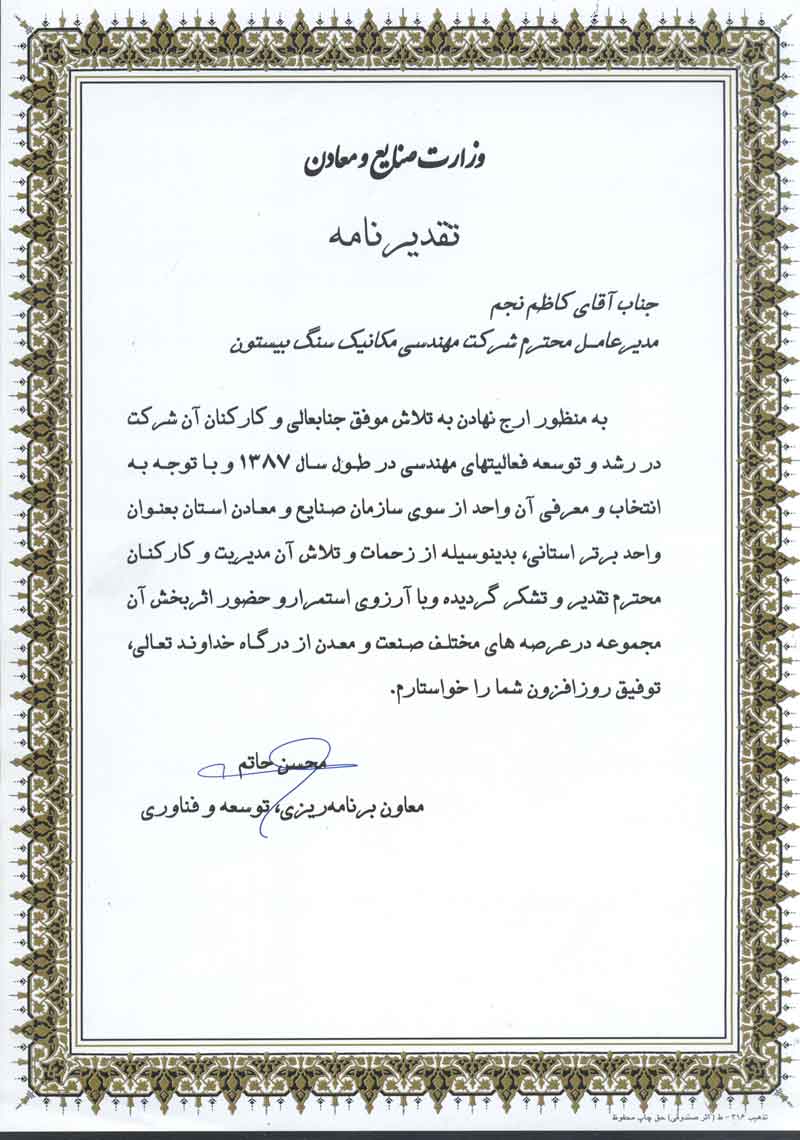 وزارت صنایع و معادن
تقدیرنامه
جناب آقای کاظم نجم
مدیرعامل محترم شرکت مهندسی مکانیک سنگ بیستون
به منظور ارج نهادن به تلاش موفق جنابعالی و کارکنان آن شرکت
در رشد و توسعه فعالیتهای مهندسی در طول سال ۱۳۸۷ و با توجه به
انتخاب و معرفی آن واحد از سوی سازمان صنایع و معادن استان بعنوان
واحد برتر استانی، بدینوسیله از زحمات و تلاش آن مدیریت و کارکنان
محترم تقدیر و تشکر گردیده وبا آرزوی استمرارو حضور اثربخش آن
مجموعه درعرصه های مختلف صنعت و معدن از درگاه خداوند تعالی،
توفیق روزافزون شما را خواستارم.
محسن حاتم
معاون برنامه‌ریزی، توسعه و فناوری
تذهیب ۳۱۶ - ط (اثر صندوقی) حق چاپ محفوظ